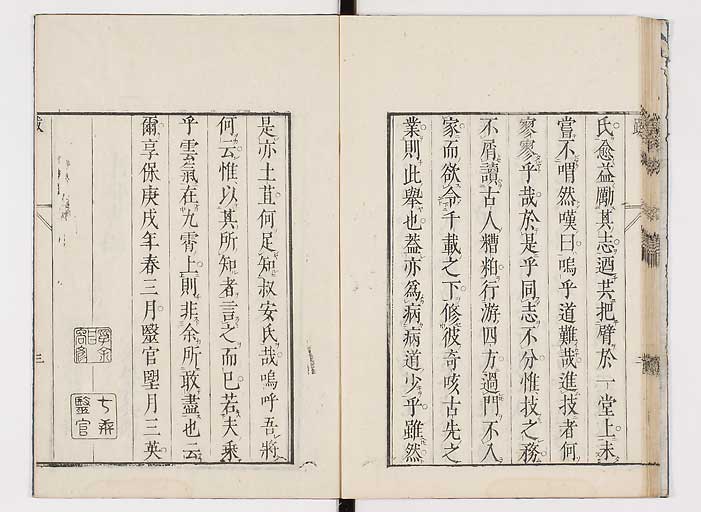 氏愈益勵其志迺共把臂於一堂上未
嘗不喟然嘆曰嗚乎道難哉進技者何
寥寥乎哉於是乎同志不分惟技之務
不屑讀古人糟粕行游四方過門不入
家而欲令千載之下修彼奇咳古先之
業則此擧也蓋亦爲病病道少乎雖然
是亦土苴何足知叔安氏哉嗚呼吾將
何云惟以其所知者言之而已若夫乘
乎雲氣在九霄上則非余所敢盡也云
爾享保庚戌年春三月毉官望月三英
七乘
毉官
三